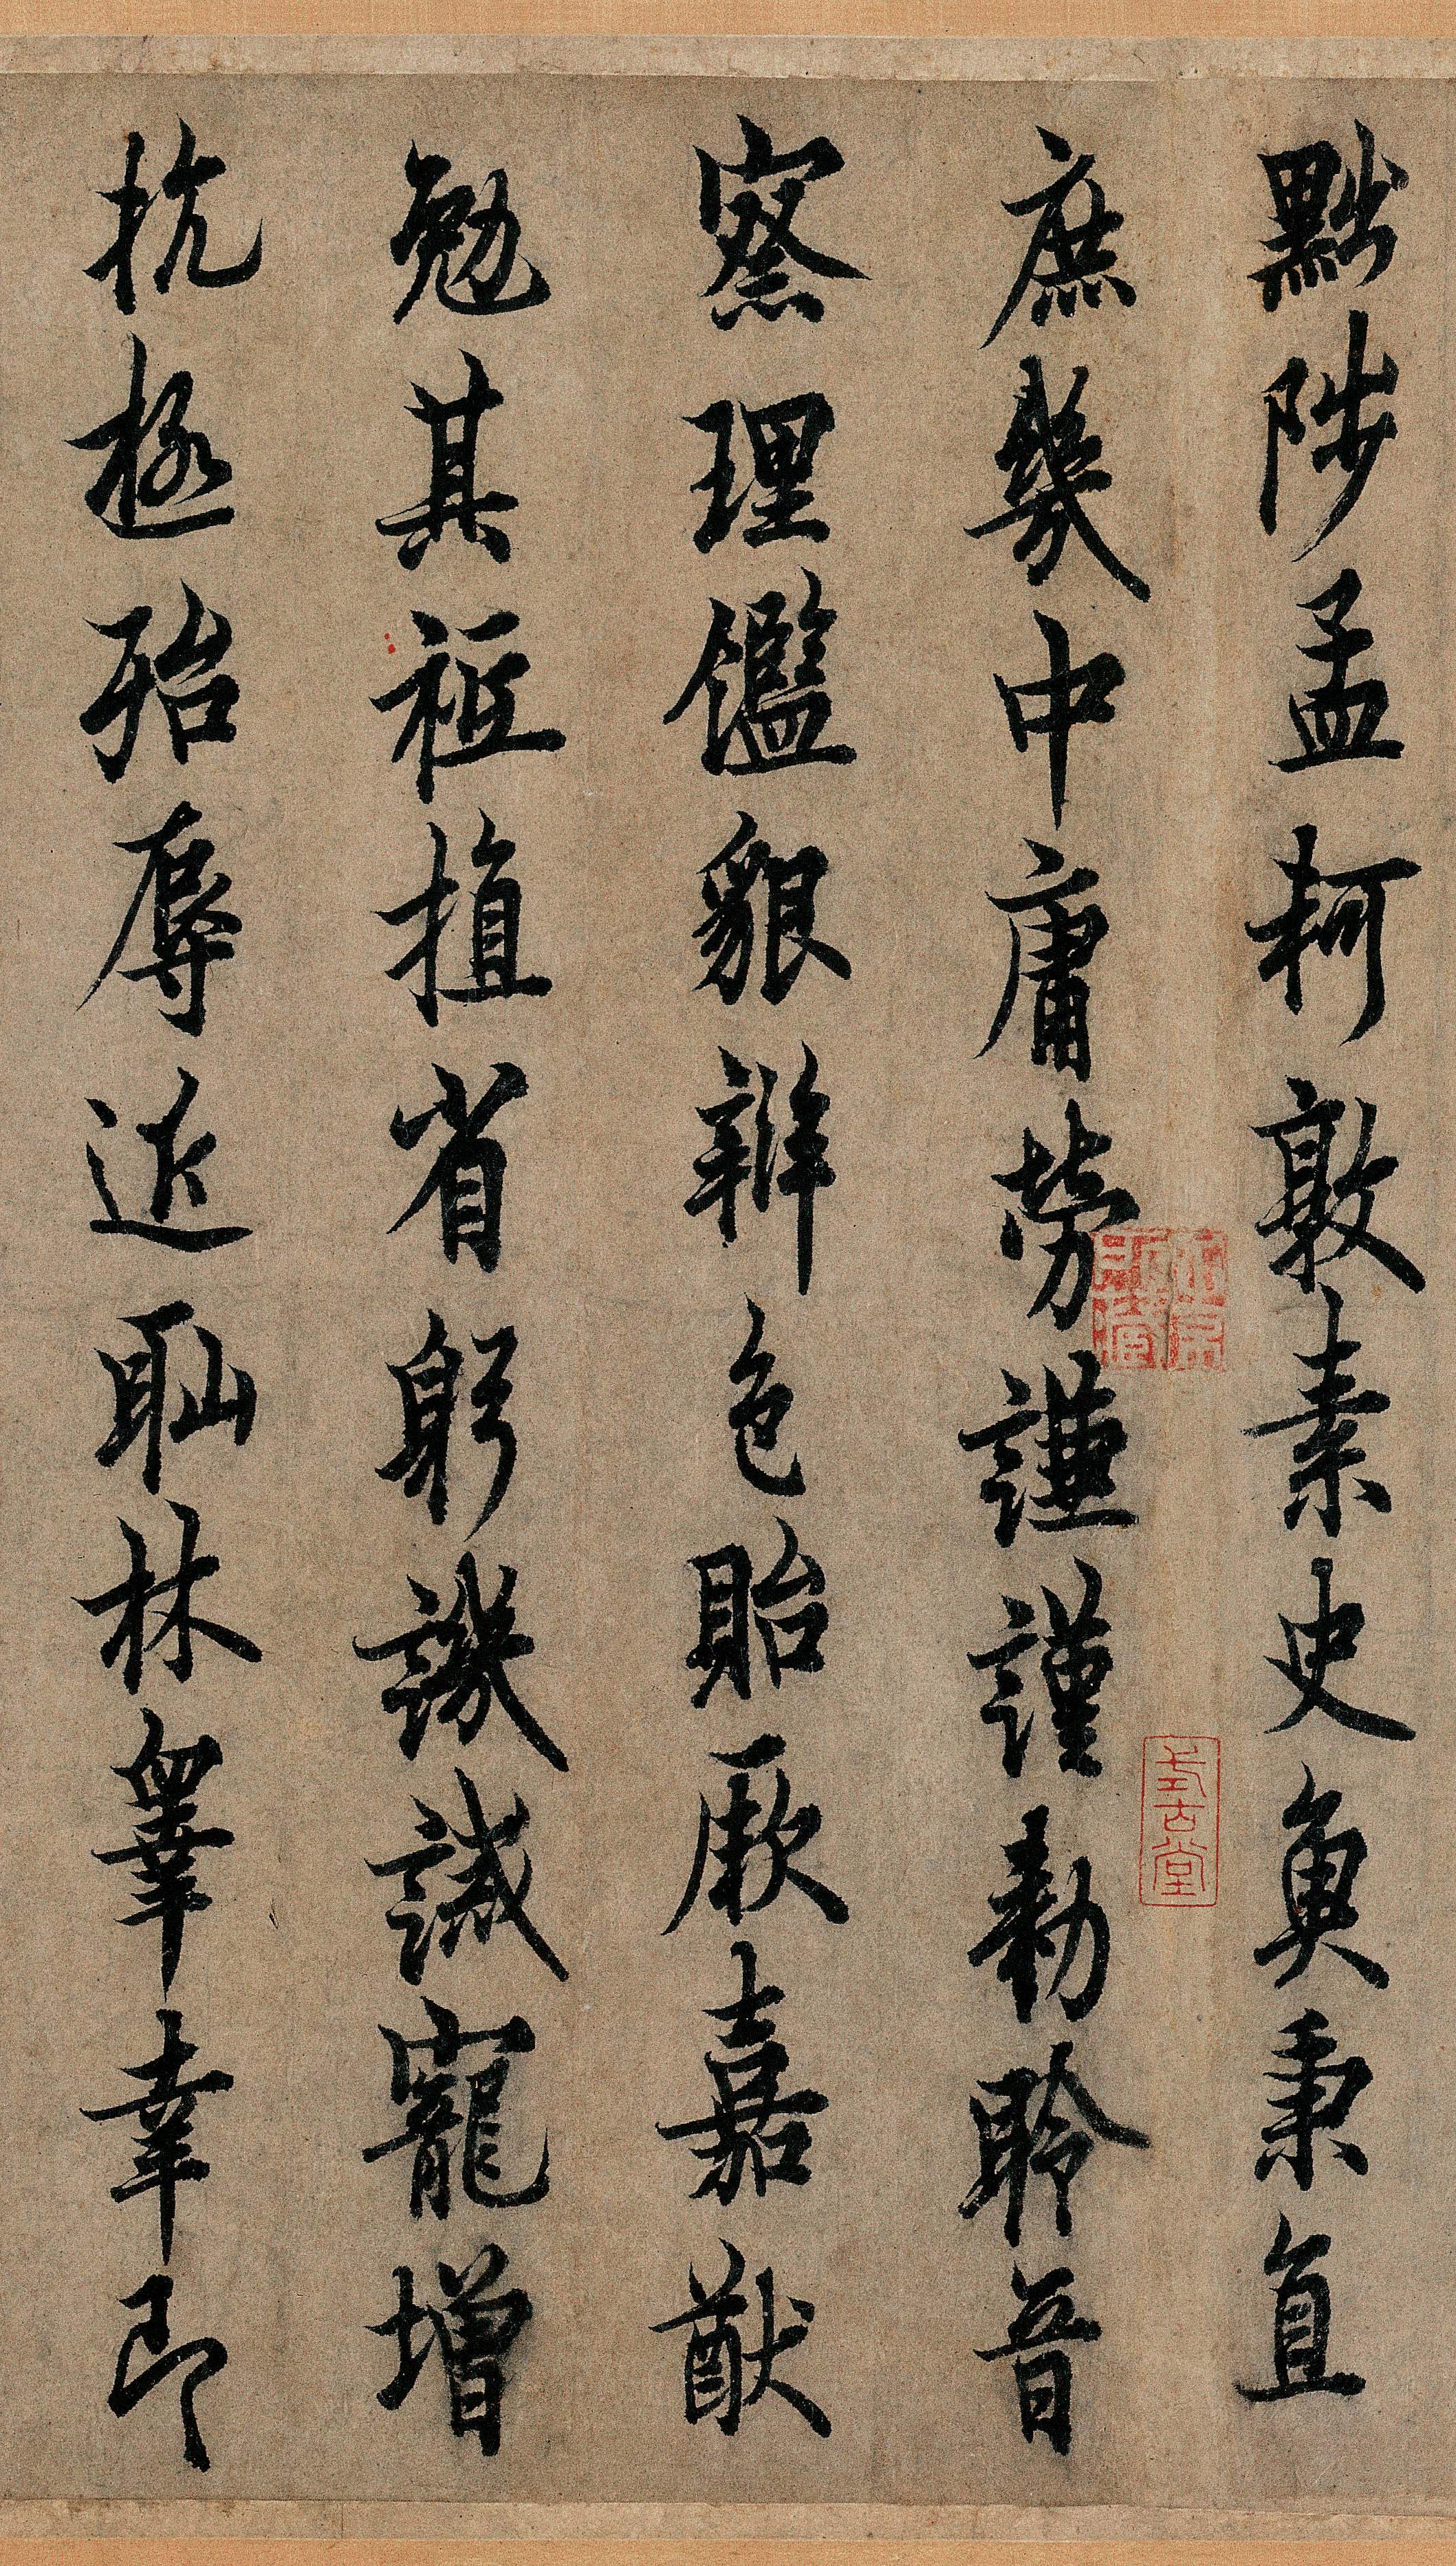 黜陟孟軻敦素史魚秉直
庶幾中庸勞謙謹勅聆音
察理鑑貌辨色貽厥嘉猷
勉其祗植省躬譏誡寵增
抗極殆辱近耻林睾幸即
式古堂